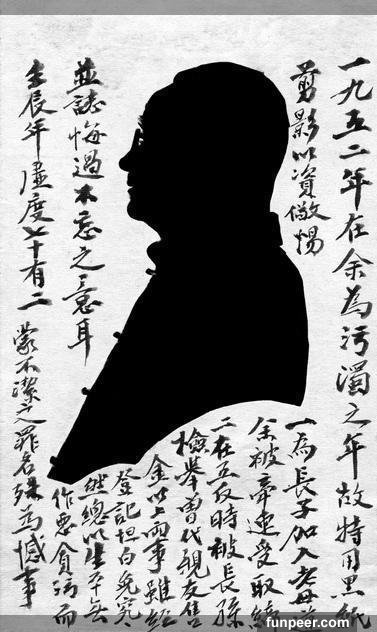 一九五二年在余為污濁之年故特用黑紙
剪影以資儆惕
並誌悔過不忘之意耳
壬辰年虛度七十有二
一為長子加入老母
余被牽連受取締
二在五反時被長孫
檢舉曾代親友售
金以上兩事雖經
登記坦白免究
然總以生平無
作惡貪污而
蒙不潔之罪名殊為憾事
funpeer.com